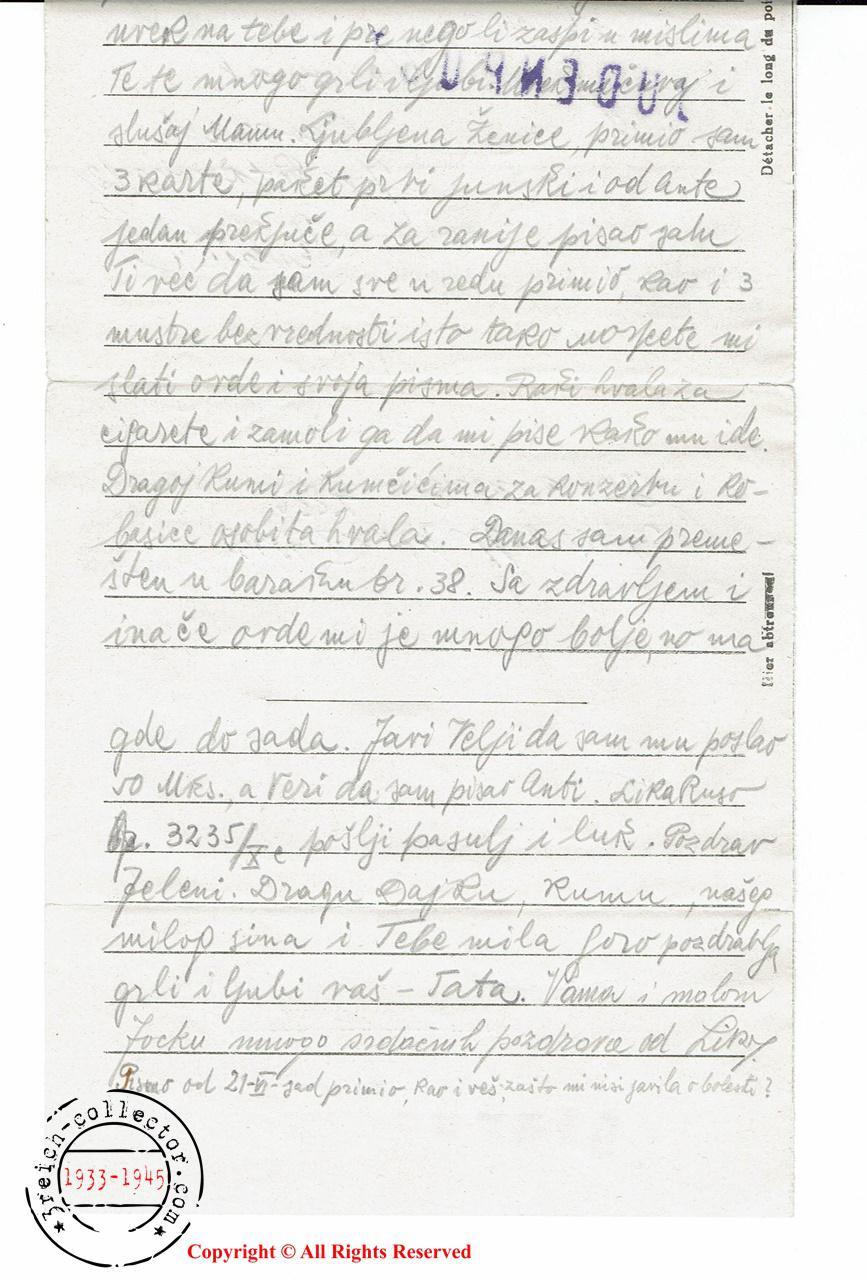 uvek na tebe i pre nego li zaspi u mislima
Te te mnogo grli i ljubi. i
slušaj Mamu. Ljubljena Ženice, primio sam
3 karte, paket prvi junski i od Ante
jedan prekjuče, a za ranije pisao sam
Ti već da sam sve u redu primio, kao i 3
mustre bez vrednosti isto tako možete mi
slati ovde i svoja pisma. Raši hvala za
cigarete i zamoli ga da mi piše kako mu ide.
Dragoj Kumi i Kumčićima za konzervu i ko-
basice osobita hvala. Danas sam preme-
šten u baraku br. 38. Sa zdravljem i
inače ovde mi je mnogo bolje no ma
gde do sada. Javi Velji da sam mu poslao
50 Mks., a Veri da sam pisao Anti. Lika Ruso
br. 3235/X c pošlji pasulj i luk. Pozdrav
Jeleni. Dragu Dajku, Kumu, našeg
milog sina i Tebe mila Goro pozdravlja
grli i ljubi vaš – Tata. Vama i malom
Jocku mnogo srdačnih pozdrava od Like
Pismo od 21-VI- sad primio, kao i veš, zašto mi nisi javila o bolesti?
Détacher le long du poi
Hier abtrennen!
3reich-collector.com
1933-1945
Copyright © All Rights Reserved